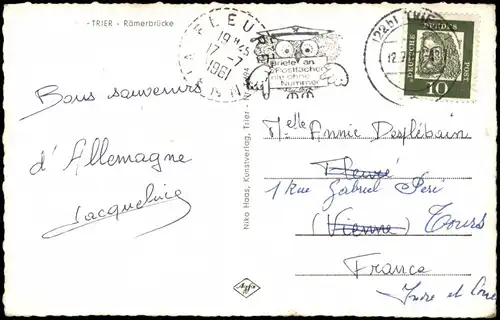 - TRIER - Römerbrücke
FLEU
19H45
17-7
1961
Briefe an
Postfächer
nie ohne
Nummer
(22b) TRIER
12.7.
DEUTSCHE BUNDESPOST
10
Bons souvenirs
d'Allemagne
Jacqueline
Niko Haas, Kunstverlag, Trier -
Melle Annie Desplébain
Fleuré
1 rue Gabriel Péri
(Vienne) Tours
France
Indre et Loire